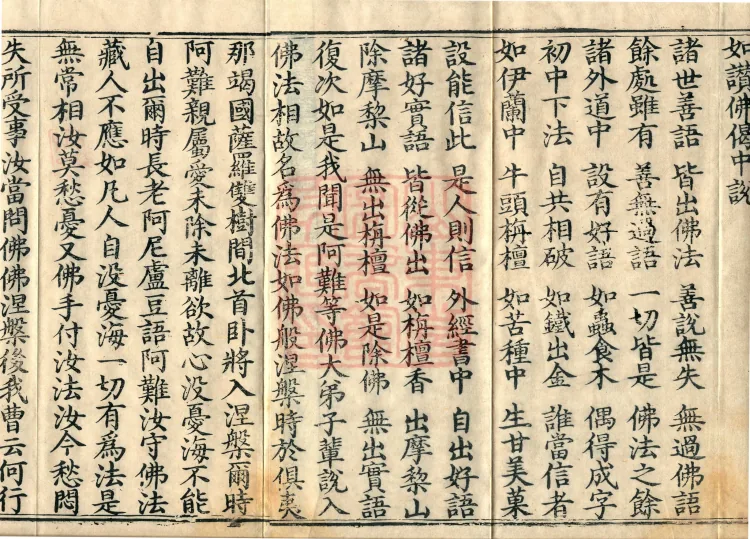 如讚佛偈中說
諸世善語　皆出佛法　善說無失　無過佛語
餘處雖有　善無過語　一切皆是　佛法之餘
諸外道中　設有好語　如蟲食木　偶得成字
初中下法　自共相破　如鐵出金　誰當信者
如伊蘭中　牛頭栴檀　如苦種中　生甘美菓
設能信此　是人則信　外經書中　自出好語
諸好實語　皆從佛出　如栴檀香　出摩黎山
除摩黎山　無出栴檀　如是除佛　無出實語
復次如是我聞是阿難等佛大弟子輩說入
佛法相故名爲佛法如佛般涅槃時於俱夷
那竭國薩羅雙樹間北首卧將入涅槃爾時
阿難親屬愛未除未離欲故心没憂海不能
自出爾時長老阿尼盧豆語阿難汝守佛法
藏人不應如凡人自没憂海一切有爲法是
無常相汝莫愁憂又佛手付汝法汝今愁悶
失所受事汝當問佛佛涅槃後我曹云何行